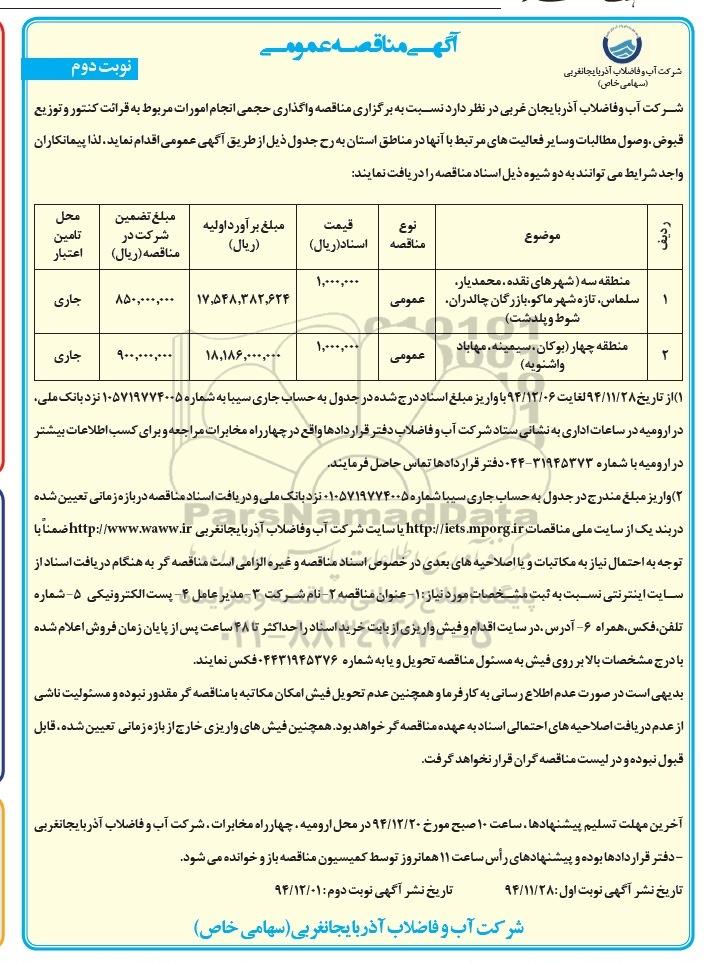 آگهی مناقصه عمومی
نوبت دوم
شرکت آب و فاضلاب آذربایجانغربی
(سهامی خاص)
شرکت آب و فاضلاب آذربایجان غربی در نظر دارد نسبت به برگزاری مناقصه واگذاری حجمی انجام امورات مربوط به قرائت کنتور و توزیع
قبوض، وصول مطالبات و سایر فعالیت های مرتبط با آنها در مناطق استان به رح جدول ذیل از طریق آگهی عمومی اقدام نماید، لذا پیمانکاران
واجد شرایط می توانند به دو شیوه ذیل اسناد مناقصه را دریافت نمایند:
ردیف | موضوع | نوع مناقصه | قیمت اسناد(ریال) | مبلغ برآورد اولیه (ریال) | مبلغ تضمین شرکت در مناقصه(ریال) | محل تامین اعتبار
۱ | منطقه سه (شهرهای نقده، محمدیار، سلماس، تازه شهر ماکو، بازرگان چالدران، شوط و پلدشت) | عمومی | ۱,۰۰۰,۰۰۰ | ۱۷,۵۴۸,۳۸۲,۶۲۴ | ۸۵۰,۰۰۰,۰۰۰ | جاری
۲ | منطقه چهار (بوکان، سیمینه، مهاباد واشنویه) | عمومی | ۱,۰۰۰,۰۰۰ | ۱۸,۱۸۶,۰۰۰,۰۰۰ | ۹۰۰,۰۰۰,۰۰۰ | جاری
۱) از تاریخ ۹۴/۱۱/۲۸ لغایت ۹۴/۱۲/۰۶ با واریز مبلغ اسناد درج شده در جدول به حساب جاری سیبا به شماره ۰۱۰۵۷۱۹۷۷۴۰۰۵ نزد بانک ملی،
در ارومیه در ساعات اداری به نشانی ستاد شرکت آب و فاضلاب دفتر قراردادها واقع در چهارراه مخابرات مراجعه و برای کسب اطلاعات بیشتر
در ارومیه با شماره ۳۱۹۴۵۳۷۳-۰۴۴ دفتر قراردادها تماس حاصل فرمایند.
۲) واریز مبلغ مندرج در جدول به حساب جاری سیبا شماره ۰۱۰۵۷۱۹۷۷۴۰۰۵ نزد بانک ملی و دریافت اسناد مناقصه در بازه زمانی تعیین شده
در بند یک از سایت ملی مناقصات http://iets.mporg.ir یا سایت شرکت آب و فاضلاب آذربایجانغربی http://www.waww.ir ضمناً با
توجه به احتمال نیاز به مکاتبات و یا اصلاحیه های بعدی در خصوص اسناد مناقصه و غیره الزامی است مناقصه گر به هنگام دریافت اسناد از
سایت اینترنتی نسبت به ثبت مشخصات مورد نیاز: ۱- عنوان مناقصه ۲- نام شرکت ۳- مدیر عامل ۴- پست الکترونیکی ۵- شماره
تلفن، فکس، همراه ۶- آدرس، در سایت اقدام و فیش واریزی از بابت خرید اسناد را حداکثر تا ۴۸ ساعت پس از پایان زمان فروش اعلام شده
با درج مشخصات بالا بر روی فیش به مسئول مناقصه تحویل و یا به شماره ۰۴۴۳۱۹۴۵۳۷۶ فکس نمایند.
بدیهی است در صورت عدم اطلاع رسانی به کارفرما و همچنین عدم تحویل فیش امکان مکاتبه با مناقصه گر مقدور نبوده و مسئولیت ناشی
از عدم دریافت اصلاحیه های احتمالی اسناد به عهده مناقصه گر خواهد بود. همچنین فیش های واریزی خارج از بازه زمانی تعیین شده، قابل
قبول نبوده و در لیست مناقصه گران قرار نخواهد گرفت.
آخرین مهلت تسلیم پیشنهادها، ساعت ۱۰ صبح مورخ ۹۴/۱۲/۲۰ در محل ارومیه، چهارراه مخابرات، شرکت آب و فاضلاب آذربایجانغربی
- دفتر قراردادها بوده و پیشنهادهای رأس ساعت ۱۱ همانروز توسط کمیسیون مناقصه باز و خوانده می شود.
تاریخ نشر آگهی نوبت اول: ۹۴/۱۱/۲۸ تاریخ نشر آگهی نوبت دوم: ۹۴/۱۲/۰۱
شرکت آب و فاضلاب آذربایجانغربی (سهامی خاص)
ParsNamadData
پایگاه اطلاع رسانی مناقصه و مزایده
۰۲۱-۸۸۳۴۹۶۷۰-۵